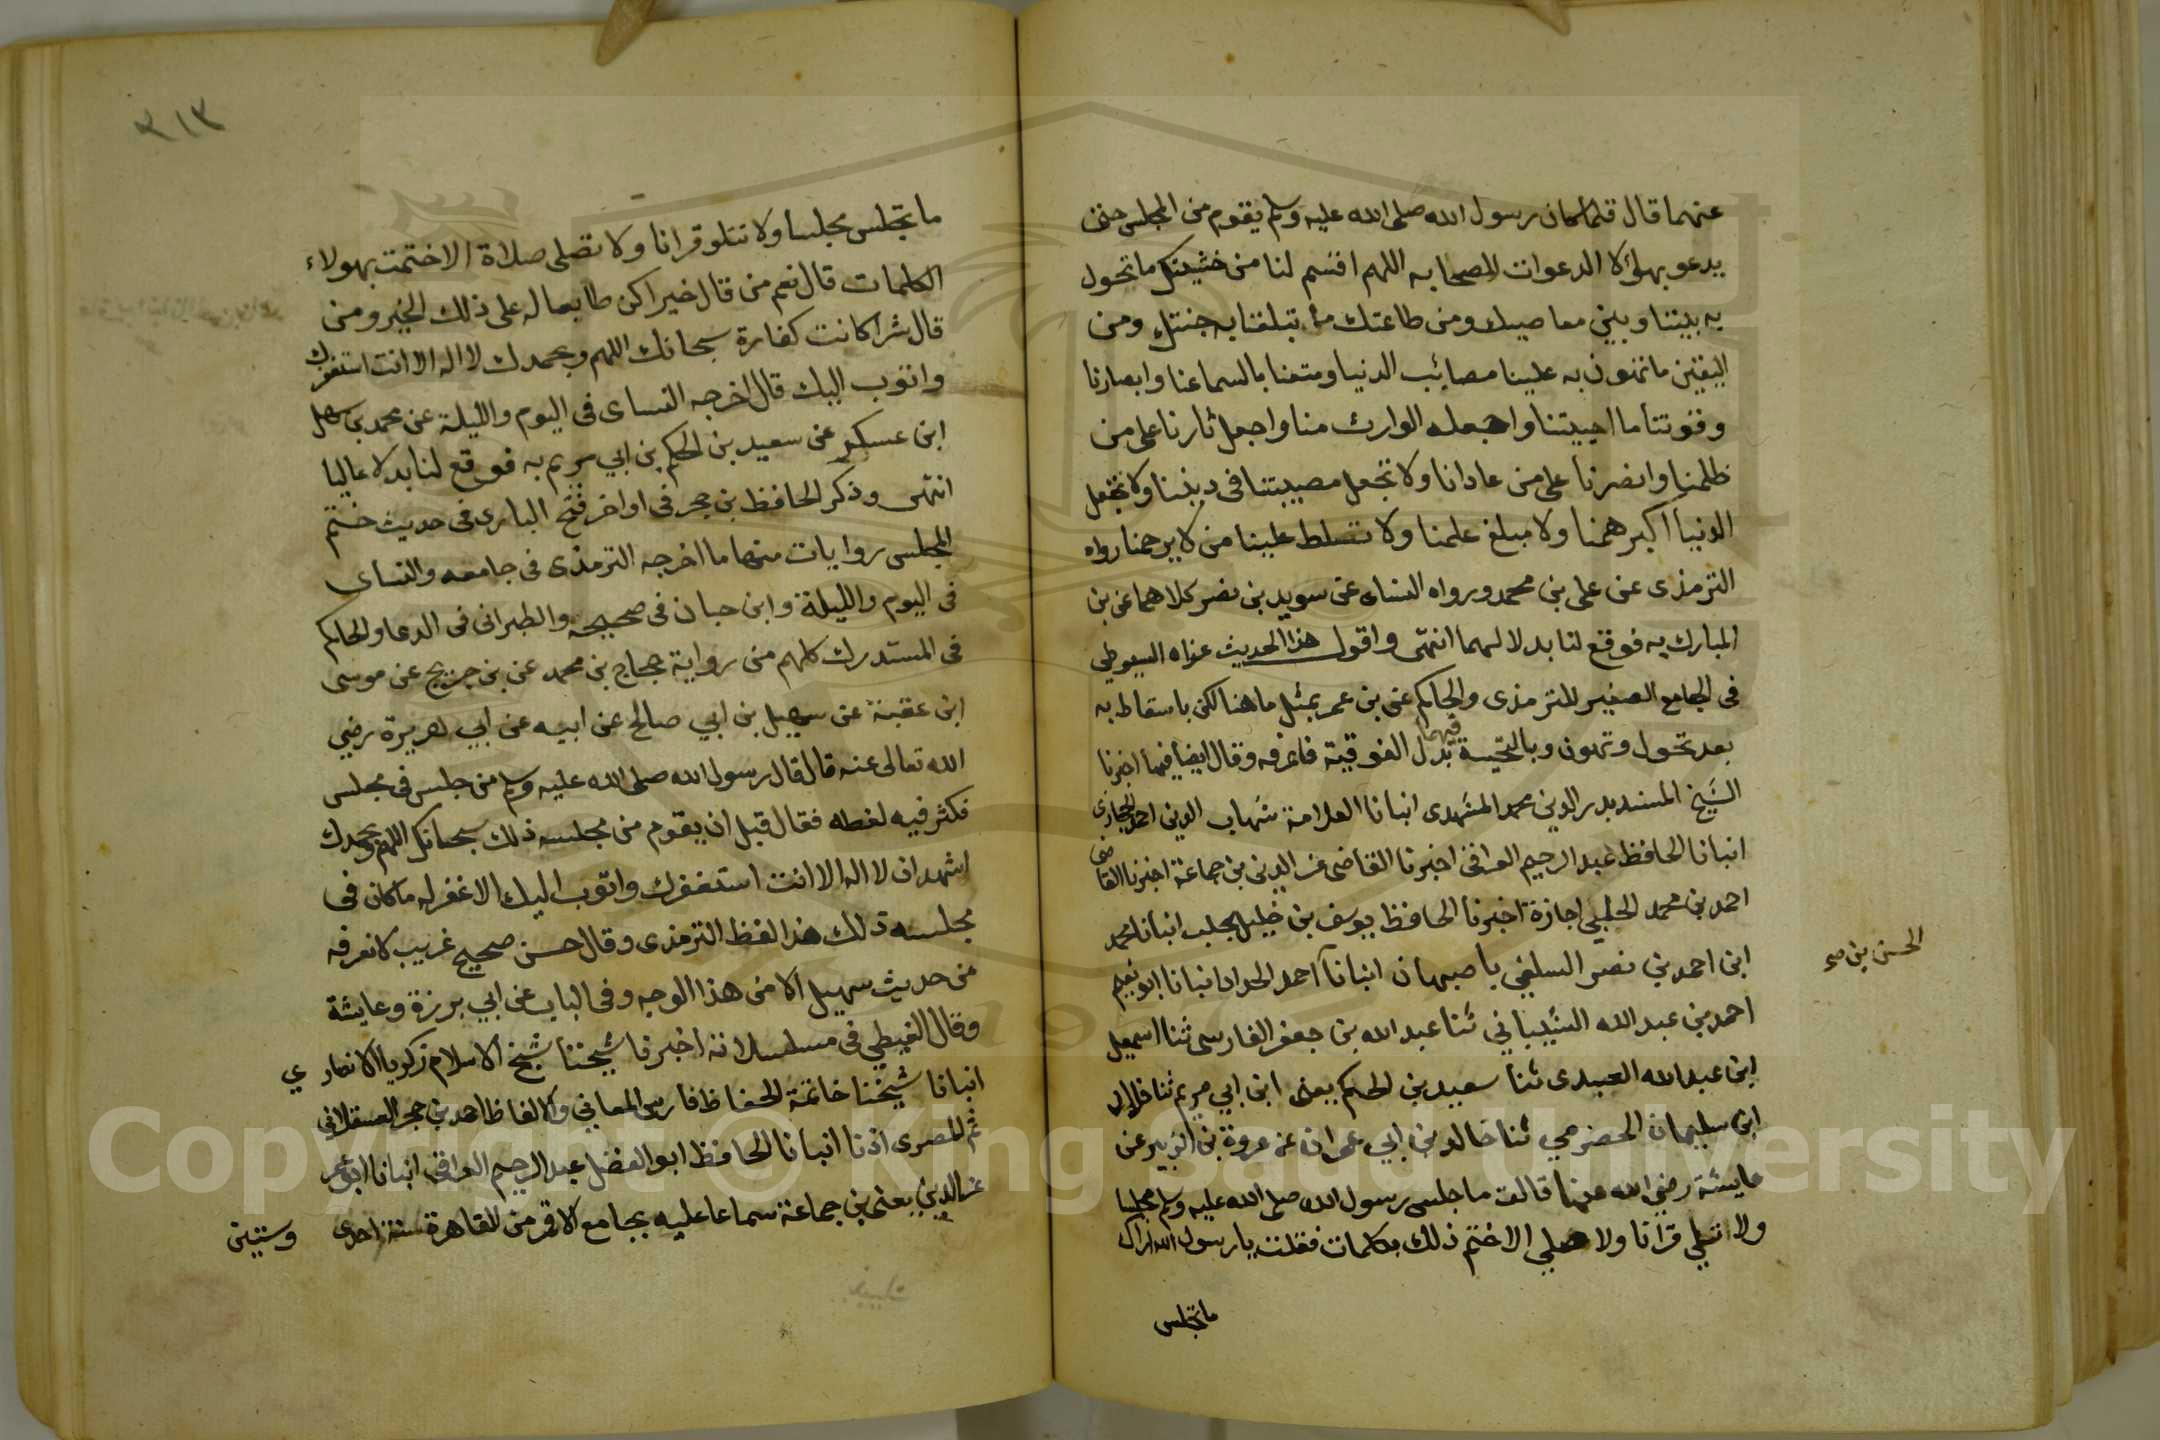 عنهما قال قلما كان رسول الله صلى الله عليه وسلم يقوم من المجلس حتى
يدعو بهؤلا الدعوات لاصحابه اللهم اقسم لنا من خشيتك ما تحول
به بيننا وبين معاصيك ومن طاعتك ما تبلغنا به جنتك ومن
اليقين ما تهون به علينا مصائب الدنيا ومتعنا باسماعنا وابصارنا
وقوتنا ما احييتنا واجعله الوارث منا واجعل ثارنا على من
ظلمنا وانصرنا على من عادانا ولا تجعل مصيبتنا فى ديننا ولا تجعل
الدنيا اكبر همنا ولا مبلغ علمنا ولا تسلط علينا من لا يرحمنا رواه
الترمذى عن على بن محمد ورواه النساى عن سويد بن نصر كلاهما عن بن
المبارك به فوقع لنا بدلا لهما انتهى واقول هذا الحديث عزاه السيوطي
فى الجامع الصغير للترمذى والحاكم عن بن عمر بمثل ما هنا لكن باسقاط به
بعد تحول وتهون وبالتحيتة فيهما بدل الفوقية فاعرفه وقال ايضا فيما اخبرنا
الشيخ المسند بدر الدين محمد المشهدى انبانا العلامة شهاب الدين احمد الحجازى
انبانا الحافظ عبد الرحيم العراقى اخبرنا القاضى عز الدين بن جماعة اخبرنا القاضى
احمد بن محمد الحلبي اجازة اخبرنا الحافظ يوسف بن خليل بحلب انبانا محمد
ابن احمد بن نصر السلفي باصبهان انبانا احمد الحداد انبانا ابو نعيم
احمد بن عبد الله الشيباني ثنا عبد الله بن جعفر الفارسى ثنا اسمعيل
ابن عبد الله العبيدى ثنا سعيد بن الحكم يعنى ابن ابي مريم ثنا خلاد
ابن سليمان الحضرمي ثنا خالد بن ابي عمران عن عروة بن الزبير عن
عايشة رضي الله عنها قالت ما جلس رسول الله صلى الله عليه وسلم مجلسا
ولا تلي قرآنا ولا صلي الا ختم ذلك بكلمات فقلت يا رسول الله اراك
ما تجلس
الحسن بن صح
٣١٣
ما تجلس مجلسا ولا تتلو قرانا ولا تصلى صلاة الا ختمت بهولاء
الكلمات قال نعم من قال خيرا كن طابعا له على ذلك الخير ومن
قال شرا كانت كفارة سبحانك اللهم وبحمدك لا اله الا انت استغفرك
واتوب اليك قال اخرجه النساى فى اليوم والليلة عن محمد بن سهل
ابن عسكر عن سعيد بن الحكم بن ابي مريم به فوقع لنا بدلا عاليا
انتهى وذكر الحافظ بن حجر فى اواخر فتح البارى فى حديث ختم
المجلس روايات منها ما اخرجه الترمذى فى جامعه والنساى
فى اليوم والليلة وابن حبان فى صحيحه والطبرانى فى الدعا والحاكم
فى المستدرك كلهم من رواية حجاج بن محمد عن بن جريج عن موسى
ابن عقبة عن سهيل بن ابي صالح عن ابيه عن ابي هريرة رضي
الله تعالى عنه قال قال رسول الله صلى الله عليه وسلم من جلس فى مجلس
فكثر فيه لغطه فقال قبل ان يقوم من مجلسه ذلك سبحانك اللهم وبحمدك
اشهد ان لا اله الا انت استغفرك واتوب اليك الا غفر له ما كان فى
مجلسه ذلك هذا لفظ الترمذى وقال حسن صحيح غريب لا نعرفه
من حديث سهيل الا من هذا الوجه وفى الباب عن ابي برزة وعايشة
وقال الغيطي فى مسلسلاته اخبرنا شيخنا شيخ الاسلام زكريا الانصارى
انبانا شيخنا خاتمة الحفاظ فارس المعاني والالفاظ احمد بن حجر العسقلاني
ثم المصرى اذنا انبانا الحافظ ابو الفضل عبد الرحيم العراقى انبانا ابو عمر
عز الدين يعنى بن جماعة سماعا عليه بجامع الاقمر من القاهرة سنة احدى وستين
Copyright © King Saud University